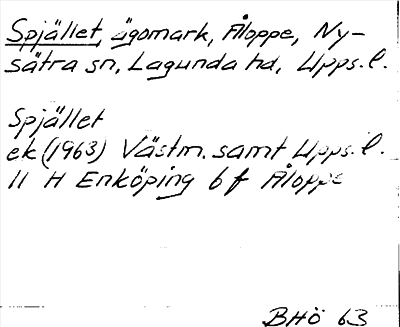 Spjället, ägomark, Åloppe, Ny-
sätra sn, Lagunda hd, Upps.l.
Spjället
ek (1963) Västm. samt Upps.l.
11 H Enköping 6 f Åloppe
BHÖ 63